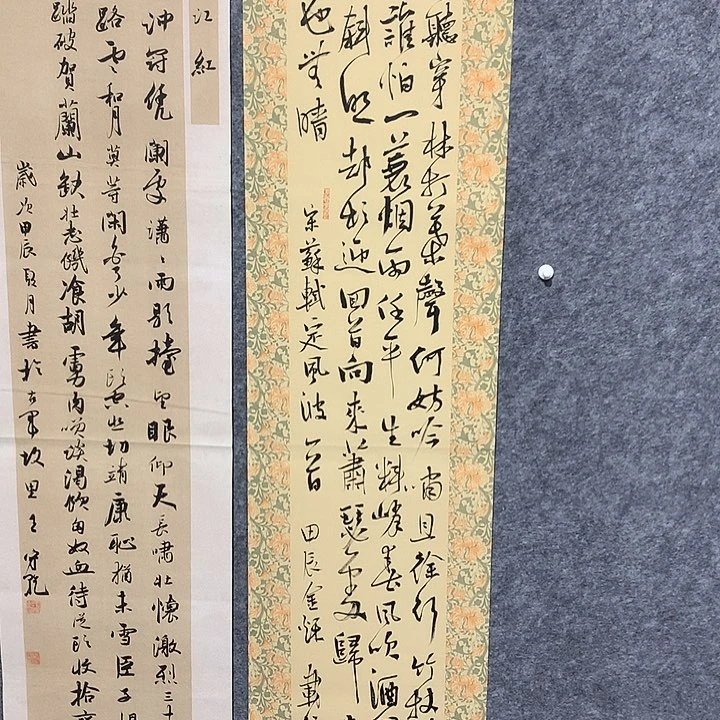 聽穿林打葉聲何妨吟嘯且徐行竹杖
誰怕一蓑烟雨任平生料峭春風吹酒
斜照却相迎回首向來蕭瑟處歸
也無晴 宋蘇軾定風波一首 甲辰金秋 戴
江紅
冲冠凭闌處潇々雨歇擡望眼仰天長嘯壯懷激烈三十
路雲和月莫等閑白了少年頭空悲切靖康恥猶未雪臣子恨
踏破賀蘭山缺壯志饑飡胡虜肉笑談渴飲匈奴血待從頭收拾
歲次甲辰夏月書於